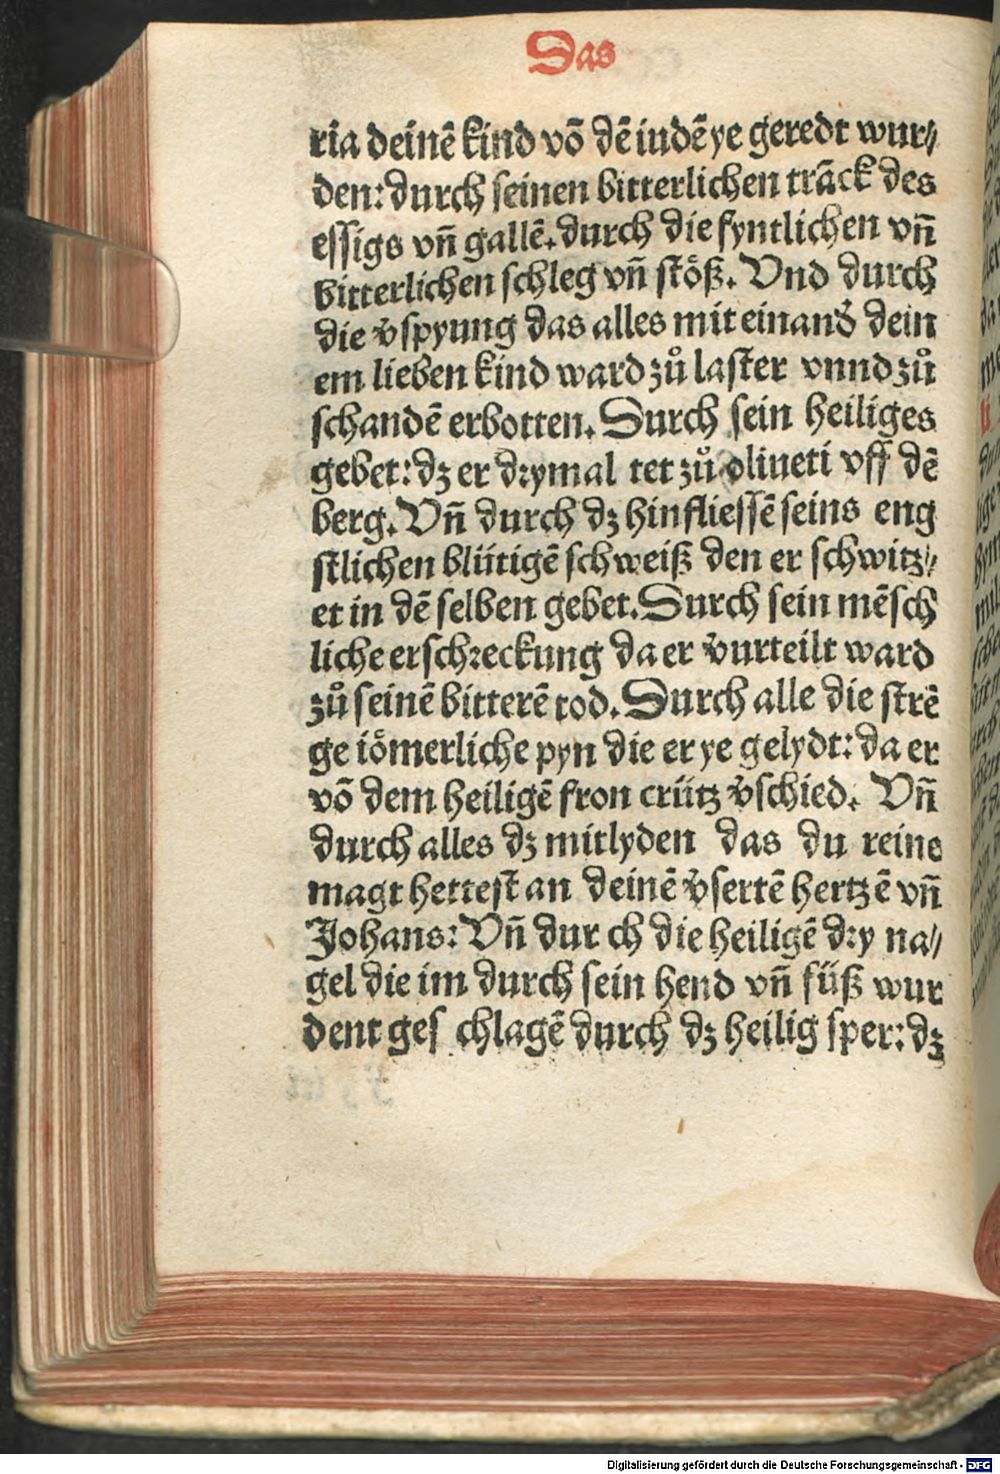 Das
ria deinē kind vō dē iudē ye geredt wur⸗
den: durch seinen bitterlichen trāck des
essigs vn̄ gallē. durch die fyntlichen vn̄
bitterlichen schleg vn̄ stöß. Vnd durch
die v̓spyung das alles mit einand̓ dein
em lieben kind ward zů laster vnnd zů
schandē erbotten. Durch sein heiliges
gebet: dz er drymal tet zů oliueti vff dē
berg. Vn̄ durch dz hinfliessē seins eng
stlichen blütigē schweiß den er schwitz⸗
et in dē selben gebet. Durch sein mēsch
liche erschreckung da er v̓urteilt ward
zů seinē bitterē tod. Durch alle die strē
ge iömerliche pyn die er ye gelydt: da er
vō dem heiligē fron crütz v̓schied. Vn̄
durch alles dz mitlyden das du reine
magt hettest an deinē v̓sertē hertzē vn̄
Johans: Vn̄ dur ch die heiligē dry na⸗
gel die im durch sein hend vn̄ füß wur
dent ges chlagē durch dz heilig sper: dz
Digitalisierung gefördert durch die Deutsche Forschungsgemeinschaft - DFG